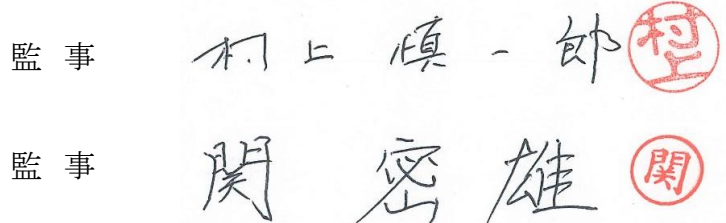 監事 村上慎一郎 村上
監事 関密雄 関